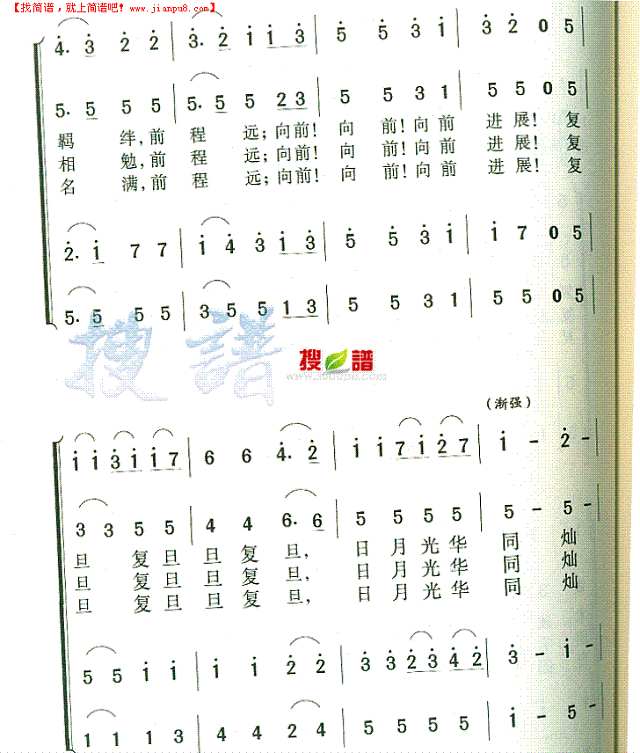 【找简谱，就上简谱吧！www.jianpu8.com】
4. 3 2 2 | 3. 2 1 1 3 | 5 5 3 1 | 3 2 0 5 |
5. 5 5 5 | 5. 5 5 2 3 | 5 5 3 1 | 5 5 0 5 |
羁 绊,前 程 远;向前! 向 前!向前 进 展! 复
相 勉,前 程 远;向前! 向 前!向前 进 展! 复
名 满,前 程 远;向前! 向 前!向前 进 展! 复
2. 1 7 7 | 1 4 3 1 3 | 5 5 3 1 | 1 7 0 5 |
5. 5 5 5 | 3 5 5 1 3 | 5 5 3 1 | 5 5 0 5 |
搜 谱
搜 谱
(渐强)
1 1 3 1 1 7 | 6 6 4. 2 | 1 1 7 1 2 7 | 1 - 2 -
3 3 5 5 | 4 4 6. 6 | 5 5 5 5 | 5 - 5 -
旦 复 旦 旦 复 旦, 日 月 光 华 同 灿
旦 复 旦 旦 复 旦, 日 月 光 华 同 灿
旦 复 旦 旦 复 旦, 日 月 光 华 同 灿
5 5 1 1 | 1 1 2 2 | 3 3 2 3 4 2 | 3 - 1 -
1 1 1 3 | 4 4 2 4 | 5 5 5 5 | 1 - 5 -